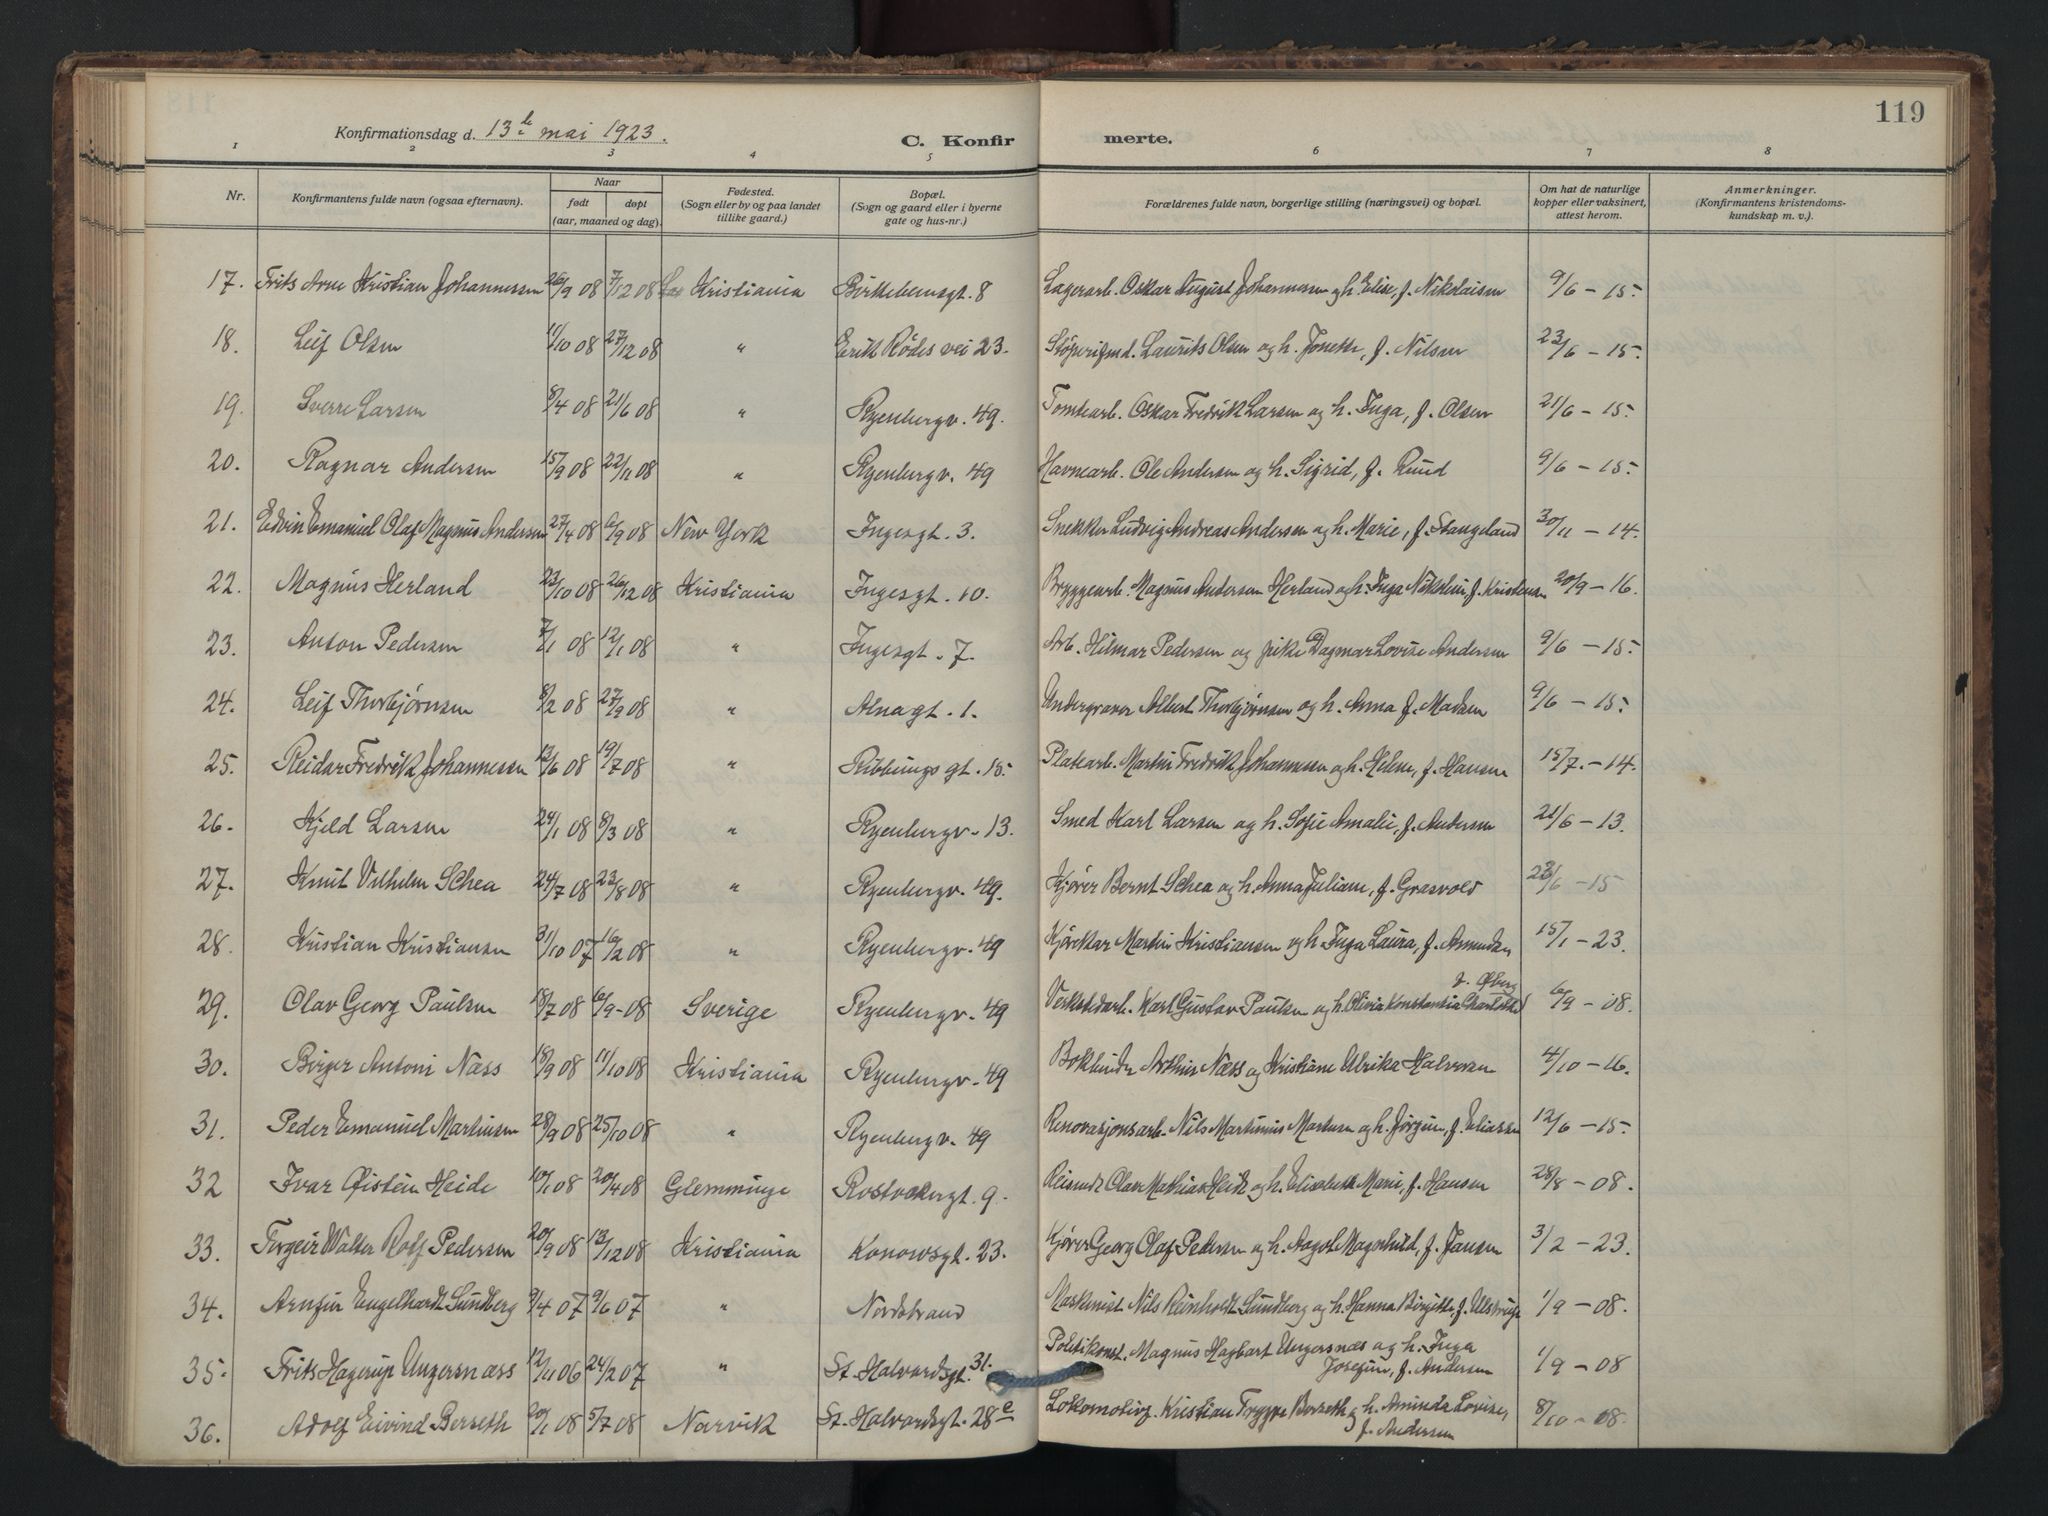 119
Konfirmationsdag d. 13de mai 1923.
C. Konfir merte.
1 2 3 4 5 6 7 8
Nr. Konfirmantens fulde navn (ogsaa efternavn). Naar født døpt (aar, maaned og dag). Fødested. (Sogn eller by og paa landet tillike gaard.) Bopæl. (Sogn og gaard eller i byerne gate og hus-nr.) Forældrenes fulde navn, borgerlige stilling (næringsvei) og bopæl. Om hat de naturlige kopper eller vaksinert, attest herom. Anmerkninger. (Konfirmantens kristendomskundskap m. v.).
17. Frits Arne Kristian Johannessen 26/9 08 7/12 08 Kristiania Birkebeinsgt. 8 Lagerarb. Oskar August Johannessen og h. Elise, f. Nikolaisen 9/6 - 15.
18. Leif Olsen 11/10 08 27/12 08 " Erik Rødes vei 23. Støperifmd. Laurits Olsen og h. Jonette, f. Nilsen 23/6 - 15.
19. Sverre Larsen 8/4 08 21/6 08 " Ryenbergv. 49. Tomtearb. Oskar Fredrik Larsen og h. Inga, f. Olsen 21/6 - 15.
20. Ragnar Andersen 15/9 08 22/11 08 " Ryenbergv. 49 Havnearb. Ole Andersen og h. Sigrid, f. Ruud 9/6 - 15.
21. Edvin Emanuel Olaf Magnus Andersen 27/4 08 6/9 08 New York Ingesgt. 3. Snekker Ludvig Andreas Andersen og h. Marie, f. Stangeland 30/11 - 14.
22. Magnus Herland 23/10 08 26/12 08 Kristiania Ingesgt. 10. Bryggearb. Magnus Andersen Herland og h. Inga f. Kristensen 20/9 - 16.
23. Anton Pedersen 7/1 08 12/1 08 " Ingesgt. 7. Arb. Hilmar Pedersen og pike Dagmar Lovise Andersen 9/6 - 15.
24. Leif Thorbjørnsen 8/2 08 27/9 08 " Alnagt. 1. Undergraver Albert Thorbjørnsen og h. Anna f. Madsen 9/6 - 15.
25. Reidar Fredrik Johannessen 13/6 08 19/7 08 " Ribbungsgt. 15. Platearb. Martin Fredrik Johannessen og h. Helene, f. Hansen 15/7. - 14.
26. Kjeld Larsen 24/1 08 8/3 08 " Ryenbergv. 13. Smed Karl Larsen og h. Sofie Amalie, f. Andersen 21/6 - 13.
27. Knut Vilhelm Schea 24/7 08 23/8 08 " Ryenbergv. 49. Kjører Bernt Schea og h. Anna Juliane, f. Grasvold 23/6 - 15
28. Kristian Kristiansen 31/10 07 16/2 08 " Ryenbergv. 49 Martin Kristiansen og h. Inga Laura, f. Amundsen 15/1 - 23.
29. Olav Georg Paulsen 18/7 08 6/9 - 08 Sverige Ryenbergv. 49 Verkstedarb. Karl Gustav Paulsen og h. Olivia Konstantia Charlotte f. Øberg 6/9 - 08.
30. Birger Antoni Næss 18/9 08 11/10 08 Kristiania Ryenbergv. 49 Bokbinder Arthur Næss og Kristiane Ulrika Halvorsen 4/10 - 16.
31. Peder Emanuel Martinsen 28/9 08 25/10 08 " Ryenbergv. 49 Renovasjonsarb. Nils Martinius Martinsen og h. Jørgine, f. Eliassen 12/6 - 15.
32 Ivar Øistein Heide 10/1 08 20/4 08 Glemminge Rostockergt. 9. Reisende Olav Mathias Heide og h. Elisabeth Marie, f. Hansen 28/8 - 08.
33. Torgeir Walter Rolf Pedersen 20/9 08 13/12 08 Kristiania Konowsgt. 23. Kjører Georg Olaf Pedersen og h. Aagot Magnhild, f. Jansen 3/2 - 23.
34. Arnfin Engelhardt Sundberg 9/4 07 9/6 07 " Nordstrand Maskinist Nils Reinholdt Sundberg og h. Hanna Birgitte, f. Ulstrup 1/9 - 08.
35. Frits Hagerup Ungersnæss 12/11 06 24/2 07 " St. Halvardsgt. 31. Politikonst. Magnus Hagbart Ungersnæs og h. Inga
Josefine, f. Andersen 1/9 - 08
36. Adolf Eivind Berseth 20/1 08 5/7 08 Narvik St. Halvardsgt. 28e Lokomotivf. Kristian Trygve Berseth og h. Aminda Lovise,
f. Andersen 8/10 - 08.